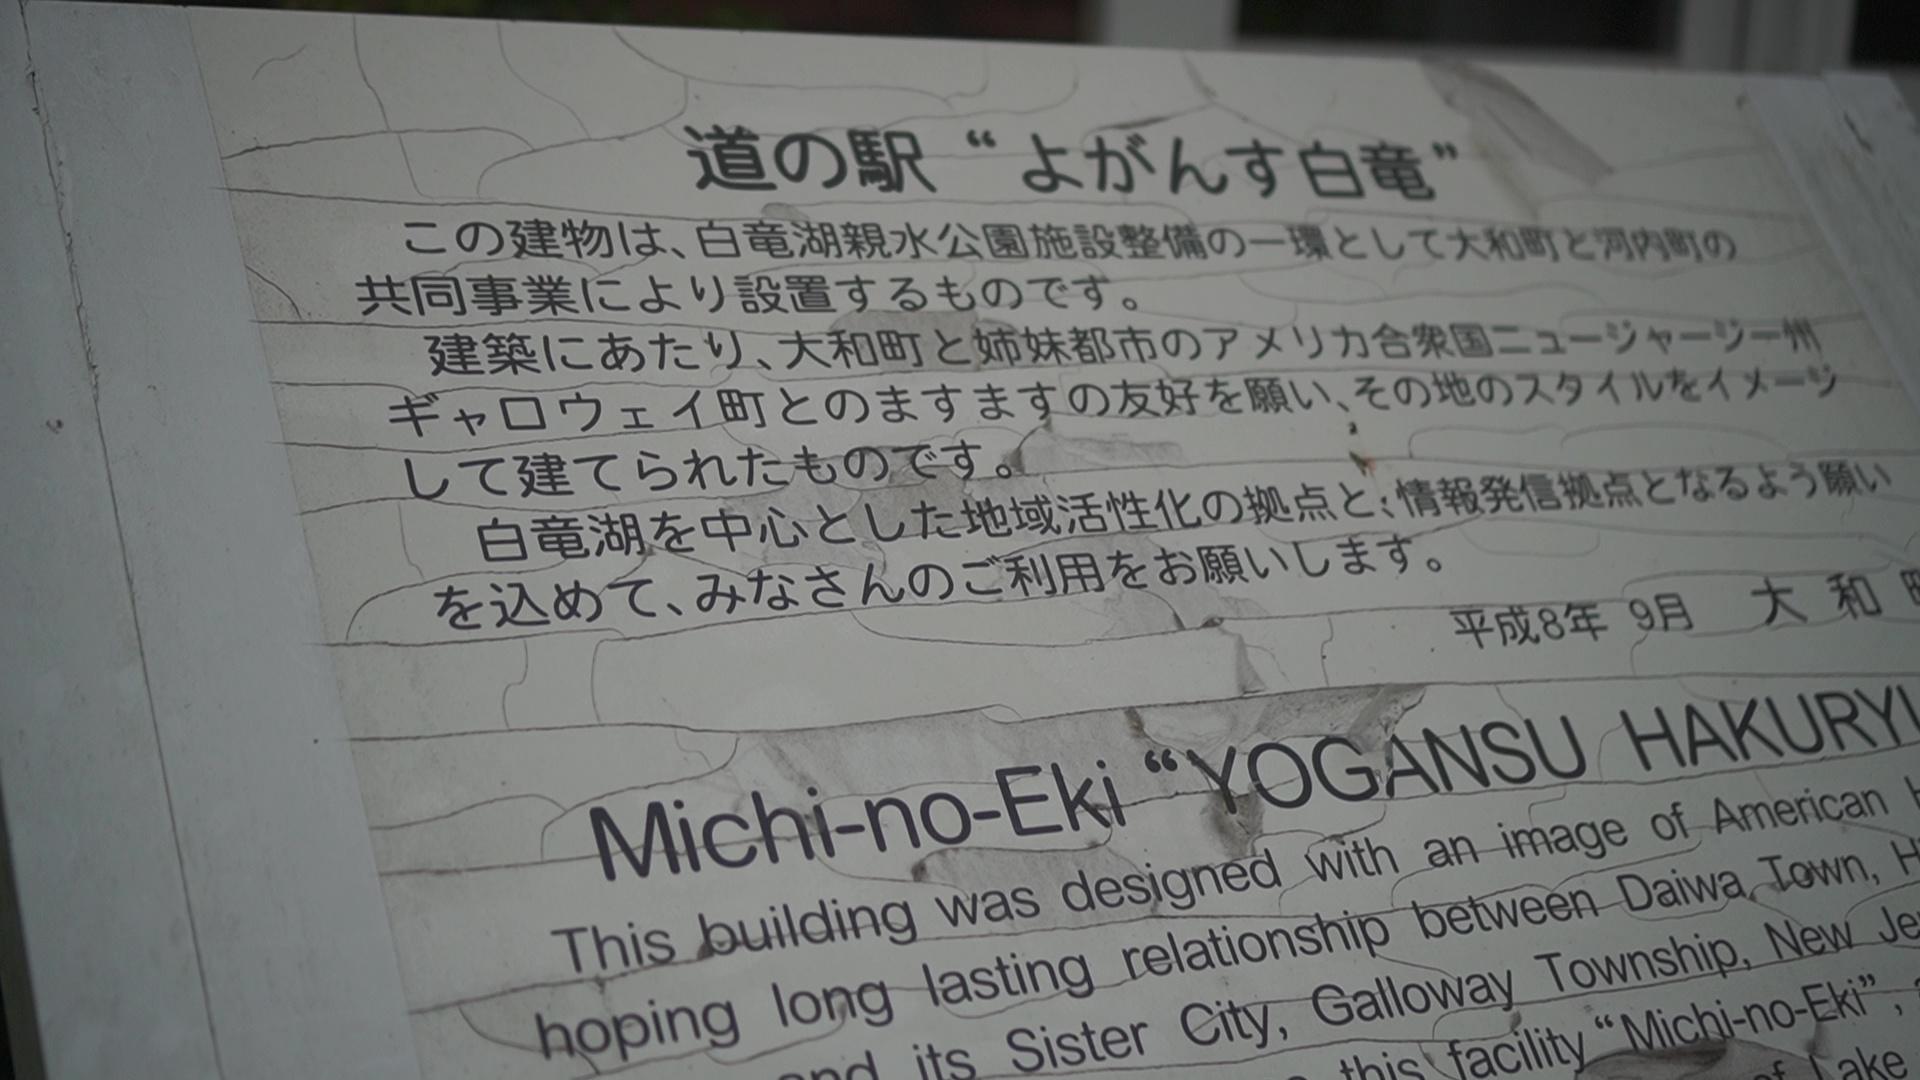 道の駅 “よがんす白竜”
この建物は、白竜湖親水公園施設整備の一環として大和町と河内町の
共同事業により設置するものです。
建築にあたり、大和町と姉妹都市のアメリカ合衆国ニュージャージー州
ギャロウェイ町とのますますの友好を願い、その地のスタイルをイメージ
して建てられたものです。
白竜湖を中心とした地域活性化の拠点と、情報発信拠点となるよう願い
を込めて、みなさんのご利用をお願いします。
平成8年 9月 大 和
Michi-no-Eki “YOGANSU HAKURYU
This building was designed with an image of American
hoping long lasting relationship between Daiwa Town, H
and its Sister City, Galloway Township, New Je
this facility “Michi-no-Eki”,
of Lake